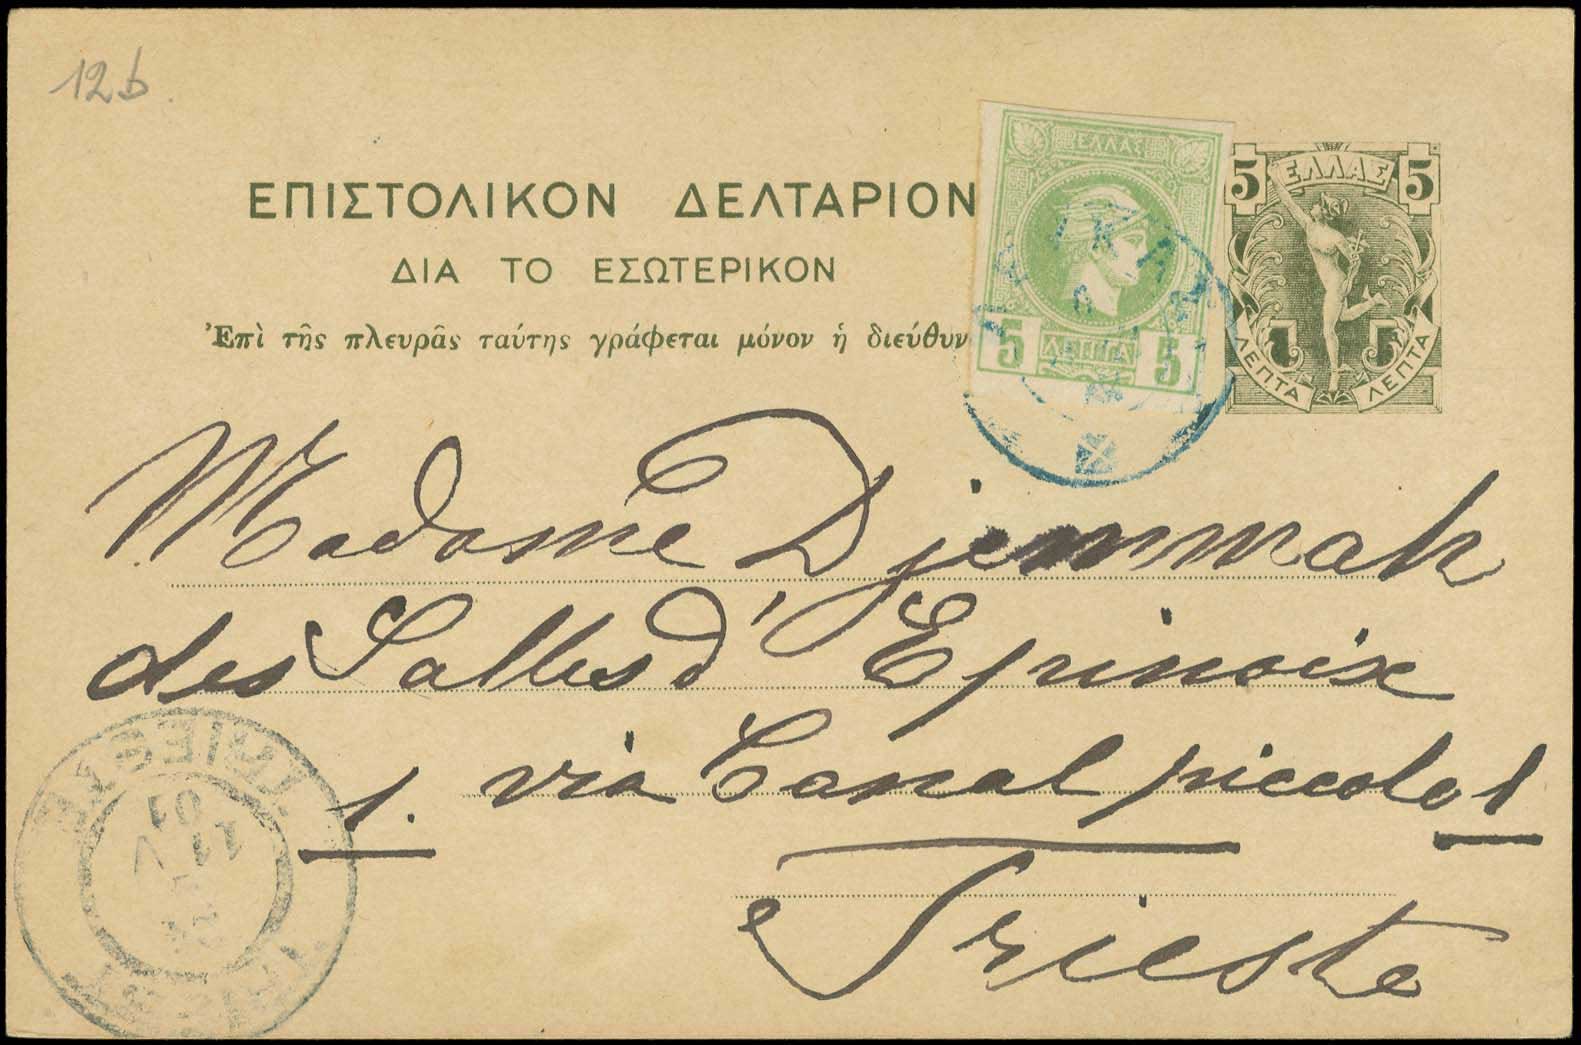 12b.
ΕΠΙΣΤΟΛΙΚΟΝ ΔΕΛΤΑΡΙΟΝ
ΔΙΑ ΤΟ ΕΣΩΤΕΡΙΚΟΝ
Ἐπὶ τῆς πλευρᾶς ταύτης γράφεται μόνον ἡ διεύθυν
ΕΛΛΑΣ
5 ΛΕΠΤΑ 5
5 ΕΛΛΑΣ 5
ΛΕΠΤΑ ΛΕΠΤΑ
Madame Djemmah
des Salles d'Epinoix
1. via Canal piccolo 1
Trieste
TRIESTE
11 V
01
TRIEST